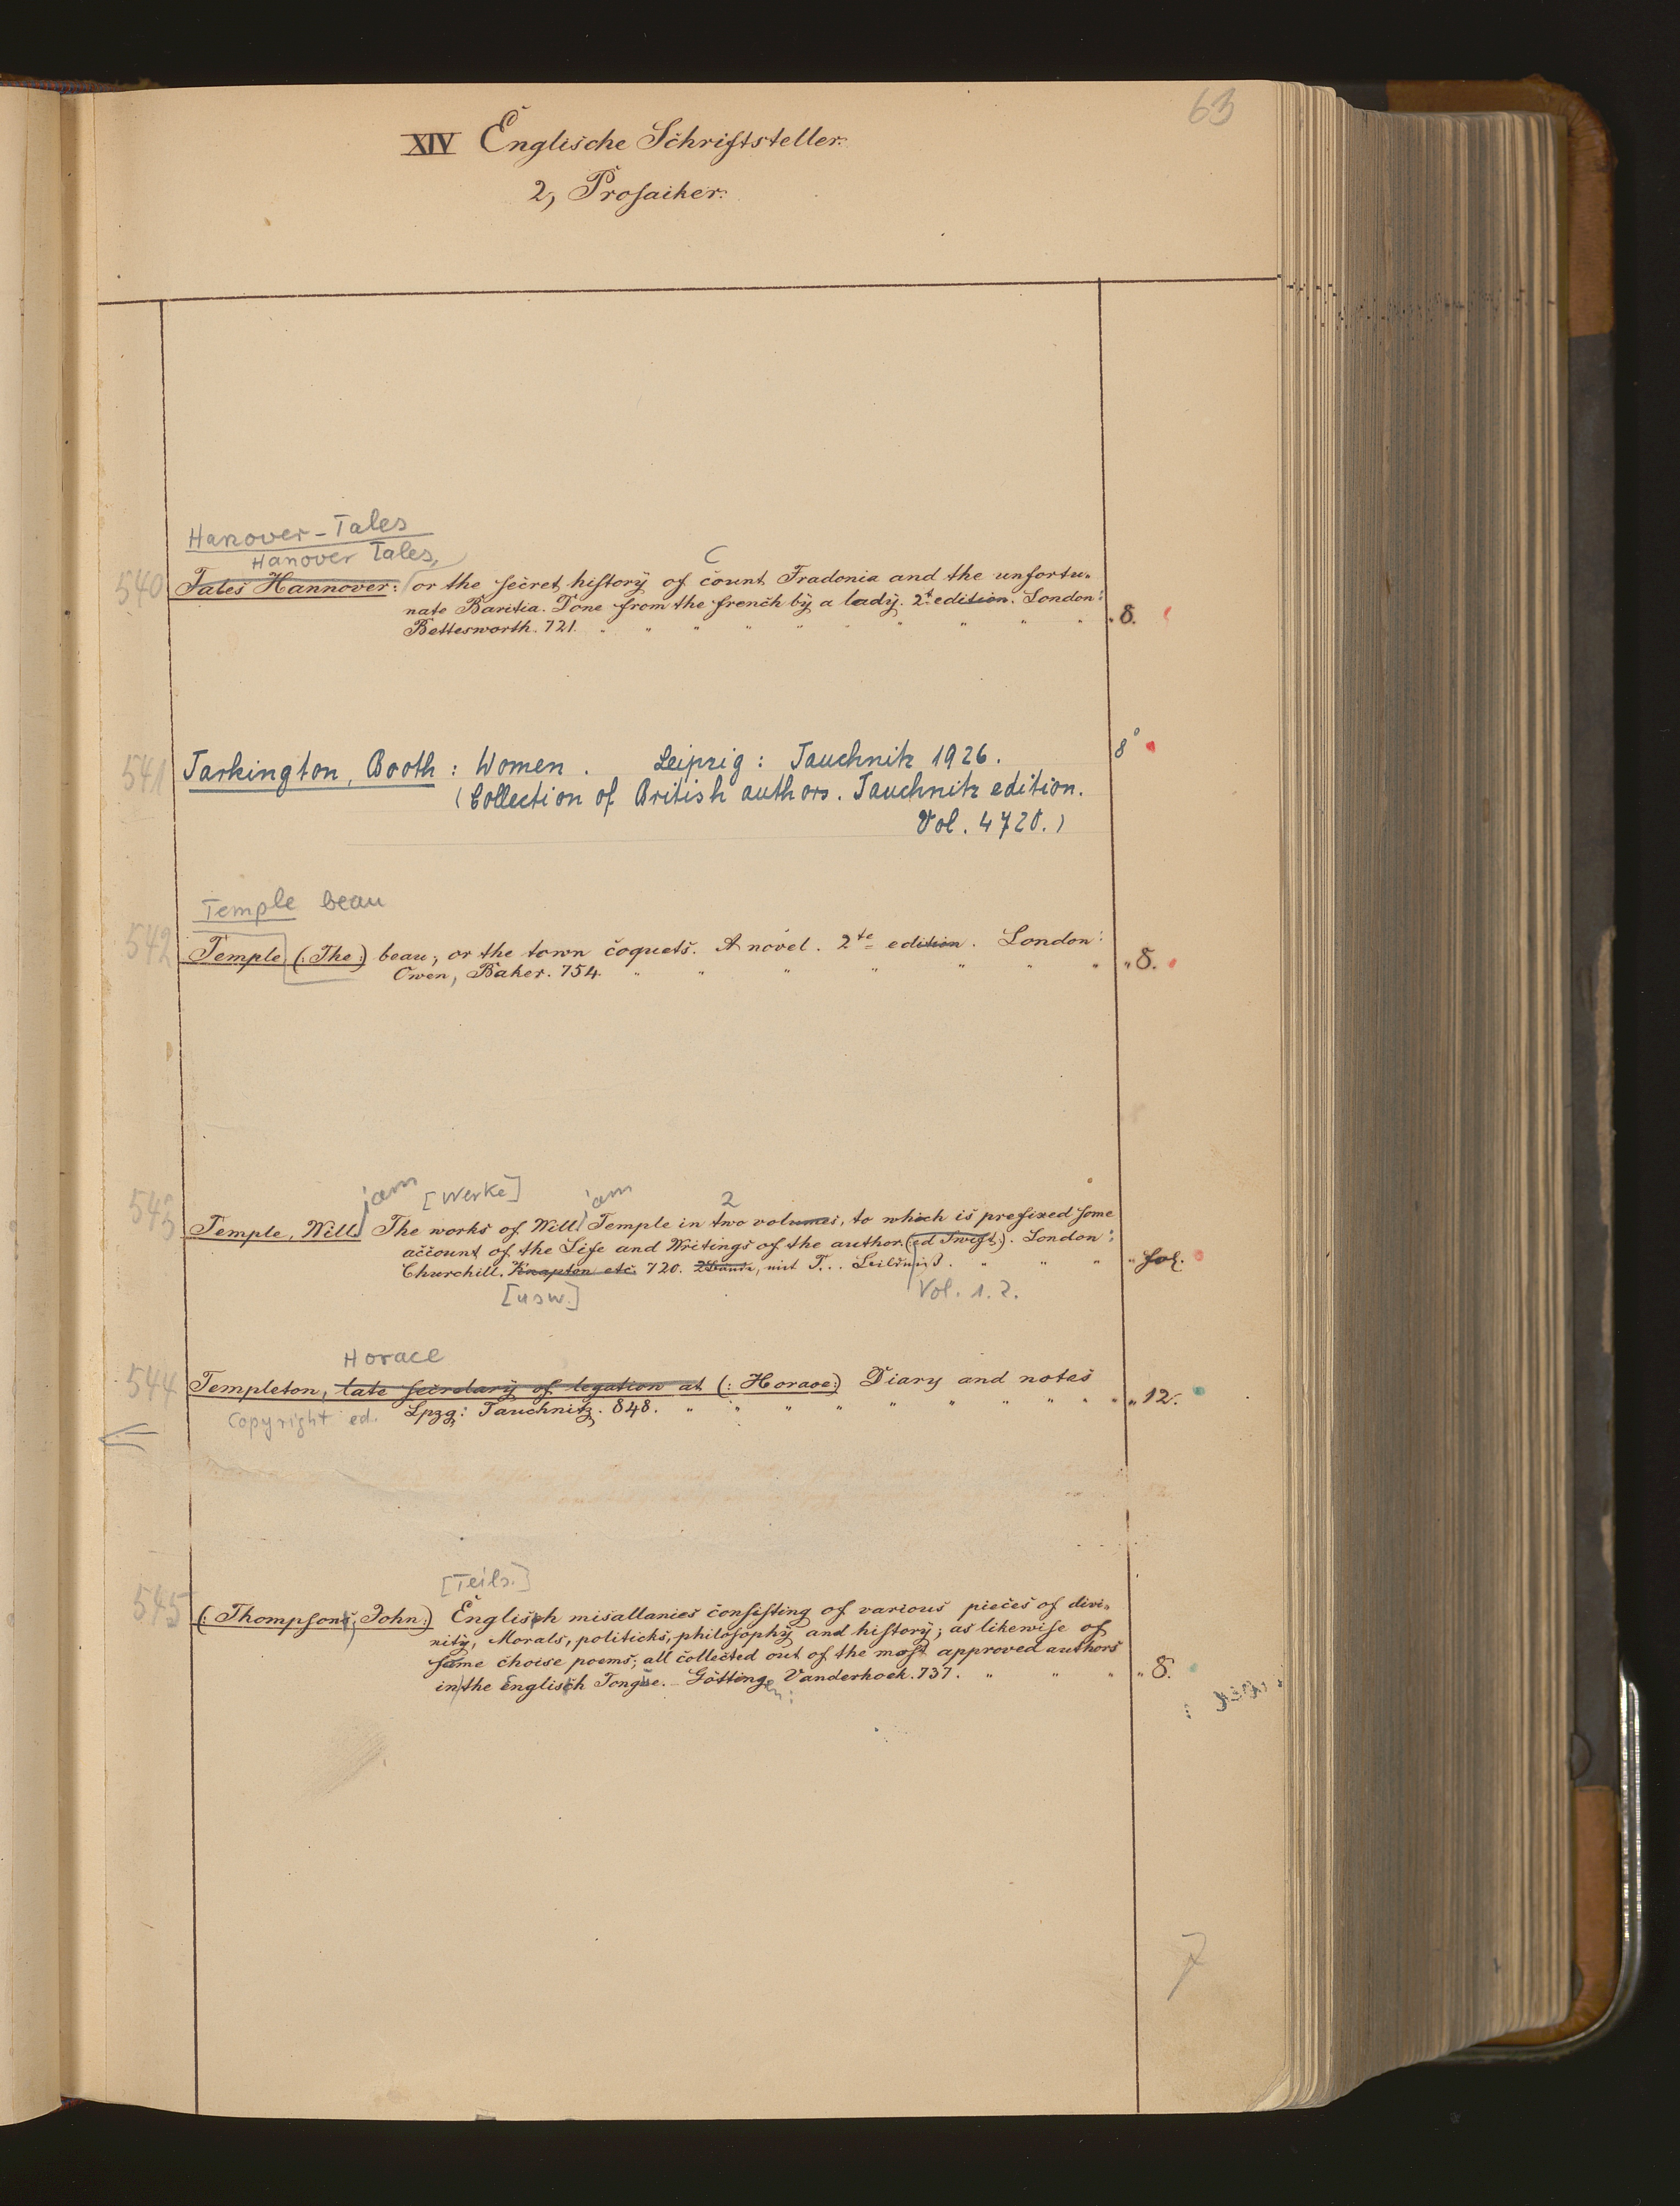 63
XIV Englische Schriftsteller.
2, Prosaiker.
Hanover-Tales
Hanover Tales,
C
540 Tales Hannover: or the secret history of count Fradonia and the unfortu-
nate Baritia. Done from the french by a lady. 2t edition. London:
Bettesworth. 721. " 8.
541 Tarkington, Booth: Women. Leipzig: Tauchnitz 1926. 8°
(Collection of British authors. Tauchnitz edition.
Vol. 4720.)
Temple beau
542 Temple (: The:) beau; or the town coquets. A novel. 2te edition. London:
Owen, Baker. 754. " 8.
iam [Werke] iam 2
543 Temple, Will. The works of Will. Temple in two volumes, to which is prefixed some
account of the Life and Writings of the author. (ed Swift.). London:
Churchill. Knapton etc. 720. " fol.
[usw.] Vol. 1. 2.
Horace
544 Templeton, late secretary of legation at (: Horace:) Diary and notes
Copyright ed. Lpzg: Tauchnitz. 848. " 12.
[Teils.]
545 (: Thompson, John:) English misallanies consisting of various pieces of divi-
nity, Morals, politicks, philosophy and history; as likewise of
same choise poems; all collected out of the most approved authors
in the English Tongue. Göttingen: Vanderhoek. 737. " 8.
7